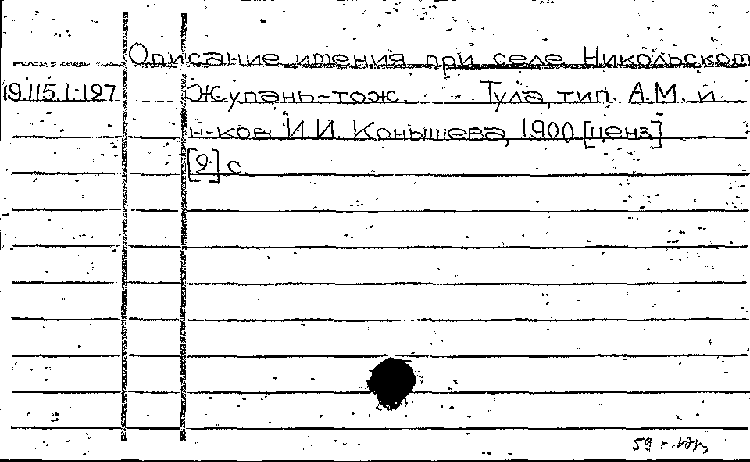 Описание имения при селе Никольском
19.115.1.127 Жупань-тож. Тула, тип. А.М. и
н-ков И.И. Конышева, 1900 [ценз]
[2] с.